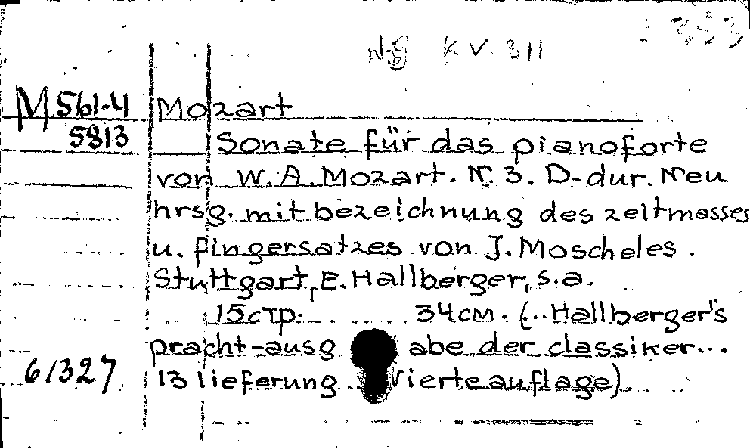 353
KV. 311
M 561-4 Mozart
5813 Sonate für das pianoforte
von W. A. Mozart. N. 3. D-dur. Neu
hrsg. mit bezeichnung des zeitmasses
u. fingersatzes von J. Moscheles.
Stuttgart, E. Hallberger, s.a.
15 стр. 34 см. (.. Hallberger's
pracht-ausgabe der classiker...
61327 13 lieferung. Vierte auflage).